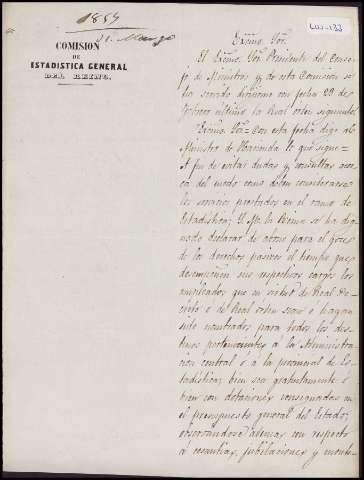 1857
31. Marzo
COMISION
DE
ESTADISTICA GENERAL
DEL REINO.
Excmo. Sor.
El Excmo. Sor. Presidente del Conse-
jo de Ministros y de esta Comision se
ha servido dirigirme con fecha 28 de
Febrero último la Real orden siguiente
Excmo. Sor. = Con esta fecha digo al
Ministro de Hacienda lo que sigue =
A fin de evitar dudas y consultas acer-
ca del modo como deben considerarse
los servicios prestados en el ramo de
Estadística; S. M. la Reina se ha dig-
nado declarar de abono para el goce
de los derechos pasivos el tiempo que
desempeñen sus respectivos cargos los
empleados que en virtud de Real de-
creto ó de Real orden sean ó hayan
sido nombrados para todos los des-
tinos pertenecientes á la Administra-
cion central ó á la provincial de Es-
tadística; bien sea gratuitamente ó
bien con dotaciones consignadas en
el presupuesto general del Estado;
observandose ademas con respecto
á cesantías, jubilaciones y monte-